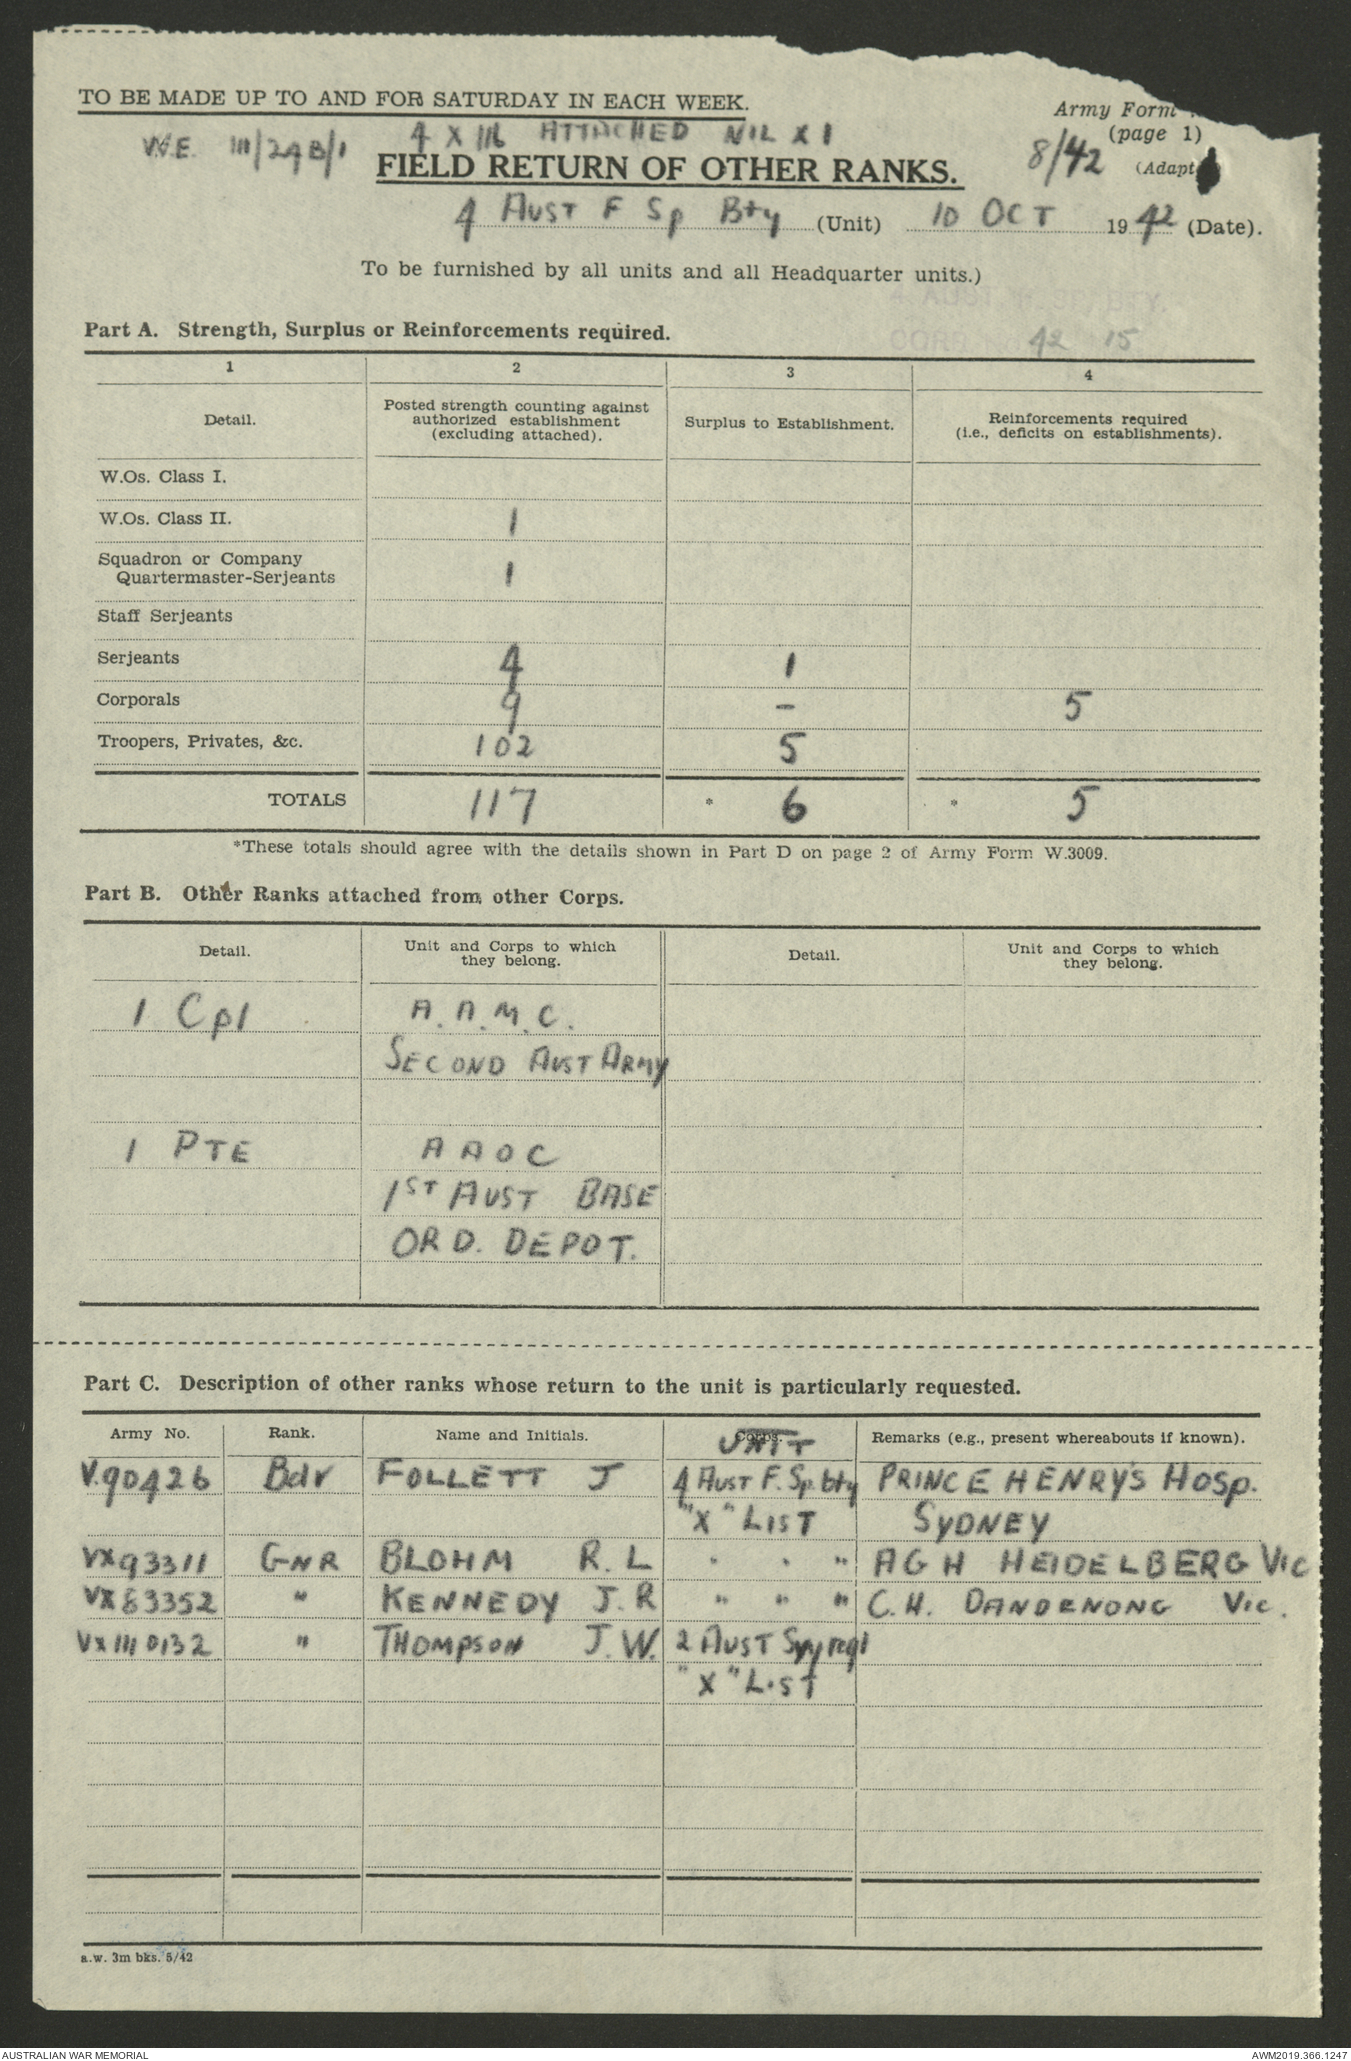 TO BE MADE UP TO AND FOR SATURDAY IN EACH WEEK.
Army Form
(page 1)
W.E. III/24B/1 4 X III ATTACHED NIL X 1
8/42 (Adapt
FIELD RETURN OF OTHER RANKS.
4 AUST F Sp Bty (Unit) 10 OCT 1942 (Date).
To be furnished by all units and all Headquarter units.)
42 15
Part A. Strength, Surplus or Reinforcements required.
1 2 3 4
Detail. Posted strength counting against authorized establishment (excluding attached). Surplus to Establishment. Reinforcements required (i.e., deficits on establishments).
W.Os. Class I.
W.Os. Class II. 1
Squadron or Company
Quartermaster-Serjeants 1
Staff Serjeants
Serjeants 4 1
Corporals 9 - 5
Troopers, Privates, &c. 102 5
TOTALS 117 * 6 * 5
*These totals should agree with the details shown in Part D on page 2 of Army Form W.3009.
Part B. Other Ranks attached from other Corps.
Detail. Unit and Corps to which they belong. Detail. Unit and Corps to which they belong.
1 Cpl A.A.M.C.
SECOND AUST ARMY
1 PTE A A O C
1ST AUST BASE
ORD. DEPOT.
Part C. Description of other ranks whose return to the unit is particularly requested.
Army No. Rank. Name and Initials. Corps. UNIT Remarks (e.g., present whereabouts if known).
V.90426 Bdr FOLLETT J 4 AUST F. Sp. bty PRINCE HENRY'S HOSP.
"X" LIST SYDNEY
VX93311 GNR BLOHM R. L " " " AGH HEIDELBERG VIC
VX83352 " KENNEDY J. R " " " C.H. DANDENONG VIC.
" THOMPSON J. W. 2 AUST Svy regt
"X" LIST
a.w. 3m bks. 5/42
AUSTRALIAN WAR MEMORIAL
AWM2019.366.1247